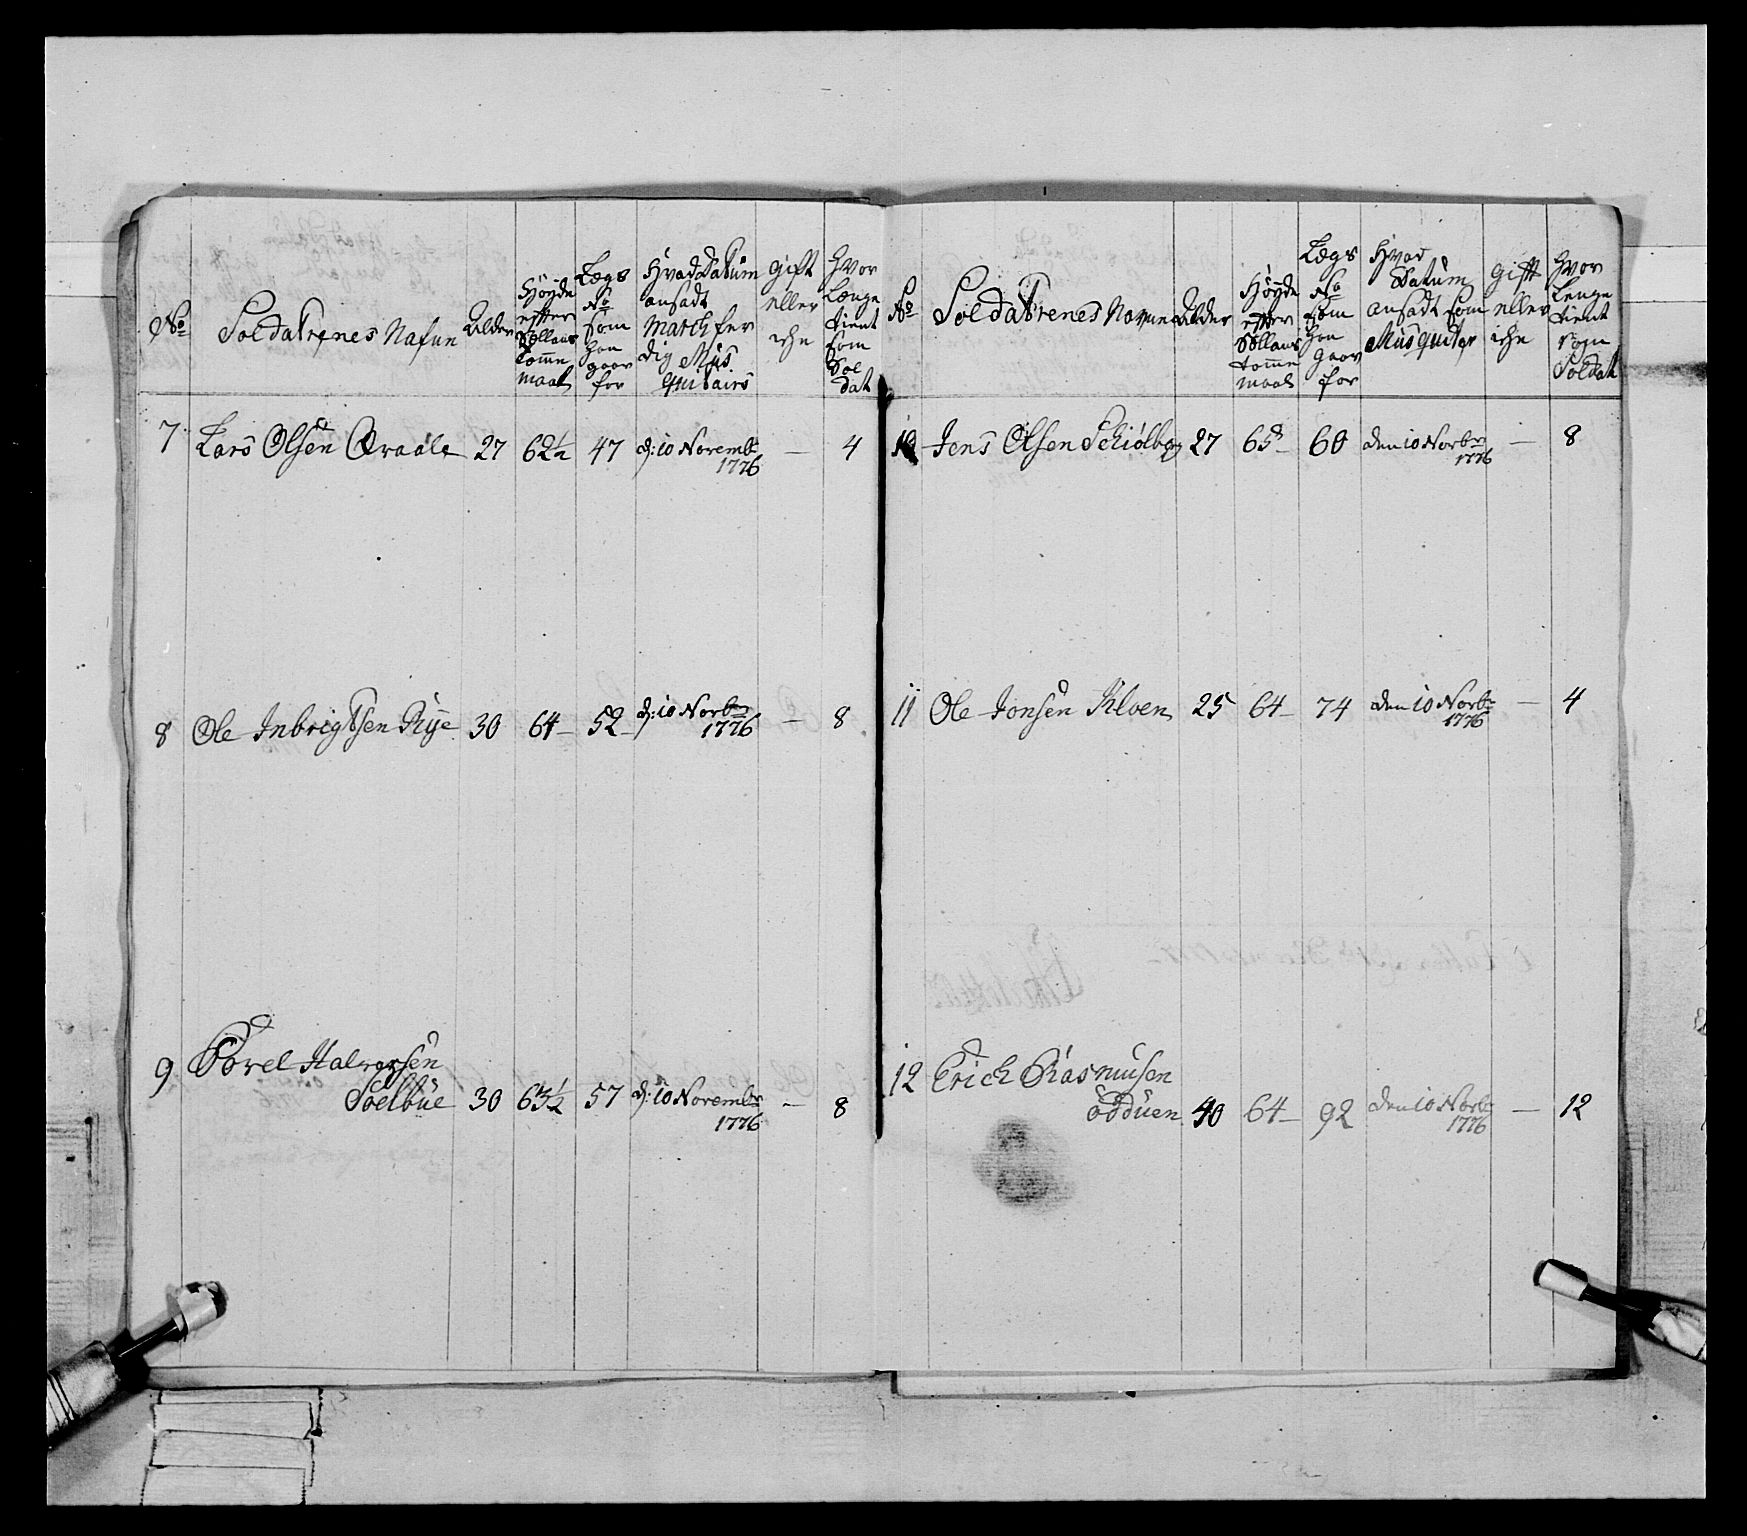 No
Soldatrenes Nafun
Alder
Høyde
efter
Sollans
Tomme
maal
Legs
No
som
han
gaar
for
Hvad Datum
ansadt
March fer
dig Mus
qutairs
gift
eller
iche
Hvor
Længe
tient
som
Sol
dat
7 Lars Olsen Qraale 27 62½ 47 d: 10 Novembr 1776 — 4
8 Ole Inbrigtsen Rye 30 64 — 52 — d: 10 Novbr 1776 — 8
9 Torel Halvorsen
Soelbue 30 63½ 57 d: 10 Novembr 1776 — 8
No
Soldatrenes Navne
Alder
Høyde
efter
Sollans
tomme
maal
Legs
No
som
han
gaar
for
Hvad
Datum
ansadt som
Musqueter
gift
eller
iche
Hvor
Lenge
tient
som
Soldat
10 Jens Olsen Schiølberg 27 65 — 60 den 10 Novbr 1776 — 8
11 Ole Jonsen Kloen 25 64 — 74 den 10 Novbr 1776 — 4
12 Erich Rasmusen
Ødduen 40 64 — 92 den 10 Novbr 1776 — 12